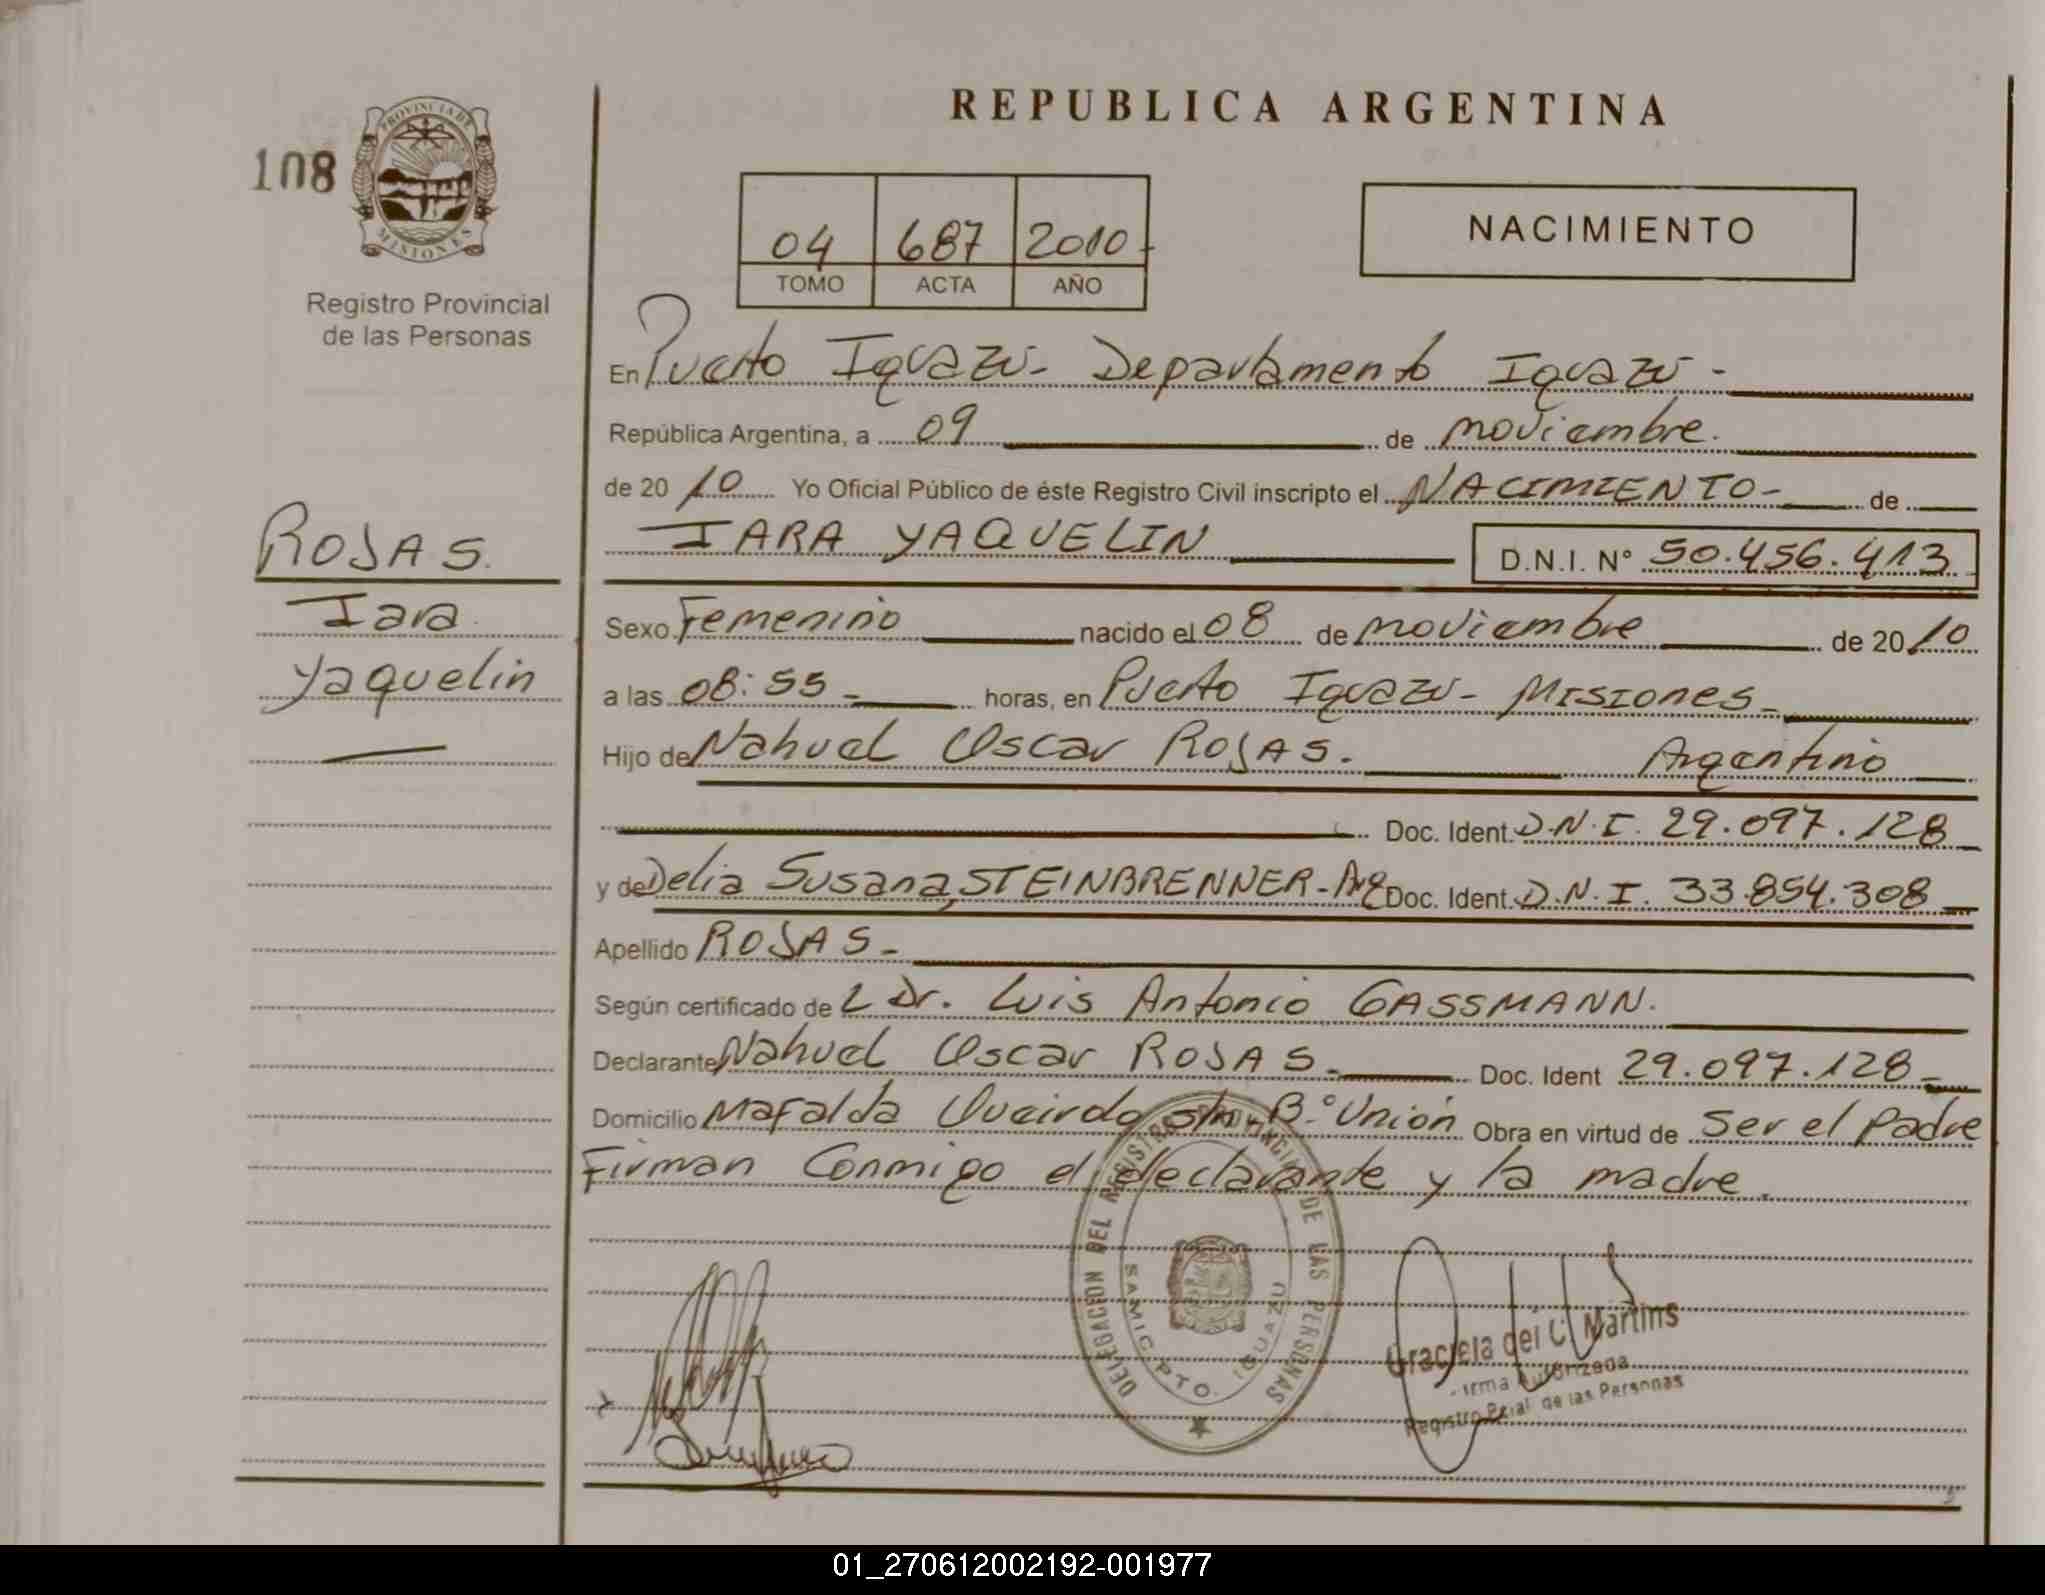 REPUBLICA ARGENTINA
108
PROVINCIA DE
MISIONES
Registro Provincial
de las Personas
04 687 2010-
TOMO ACTA AÑO
NACIMIENTO
En Puerto Iguazú- Departamento Iguazú-
República Argentina, a 09 de noviembre.
de 20 10 Yo Oficial Público de éste Registro Civil inscripto el NACIMIENTO- de
IARA YAQUELIN D.N.I. Nº 50.456.413
ROJAS.
Iara
Yaquelin
Sexo Femenino nacido el 08 de noviembre de 20 10
a las 08:55- horas, en Puerto Iguazú- Misiones-
Hijo de Nahuel Oscar ROJAS. Argentino
Doc. Ident. D.N.I. 29.097.128
y de Delia Susana, STEINBRENNER-Arg Doc. Ident. D.N.I. 33.854.308
Apellido ROJAS-
Según certificado de L Dr. Luis Antonio GASSMANN.
Declarante Nahuel Oscar ROJAS- Doc. Ident 29.097.128-
Domicilio Mafalda s/n- B.° Unión Obra en virtud de Ser el padre
Firman Conmigo el declarante y la madre.
DELEGACION DEL REGISTRO PROVINCIAL DE LAS PERSONAS
SAMIC PTO. IGUAZU
Graciela del C. Martins
Firma Autorizada
Registro Pcial de las Personas
01_270612002192-001977